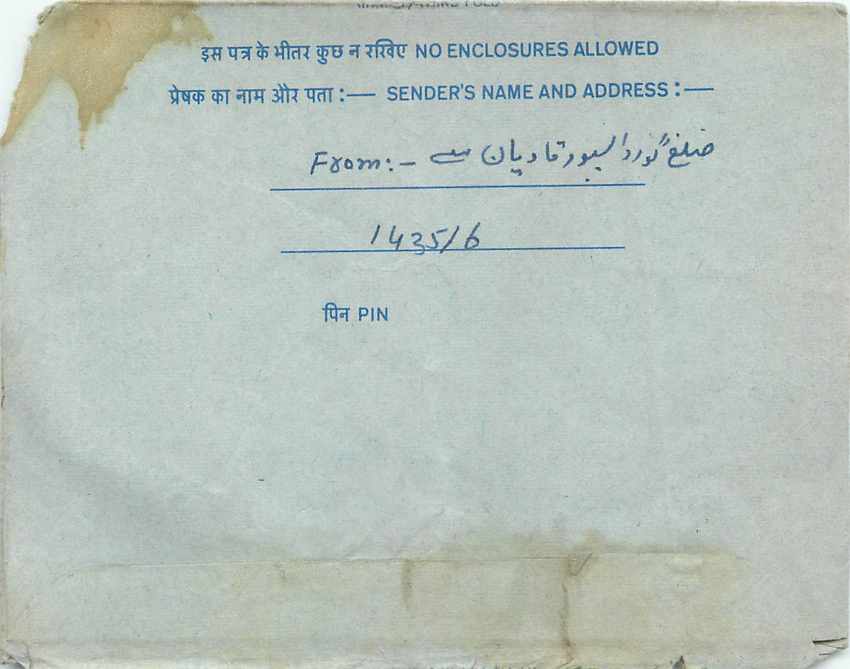 इस पत्र के भीतर कुछ न रखिए NO ENCLOSURES ALLOWED
प्रेषक का नाम और पता :— SENDER'S NAME AND ADDRESS :—
From:- ضلع گورداسپور قادیان سے
143516
पिन PIN